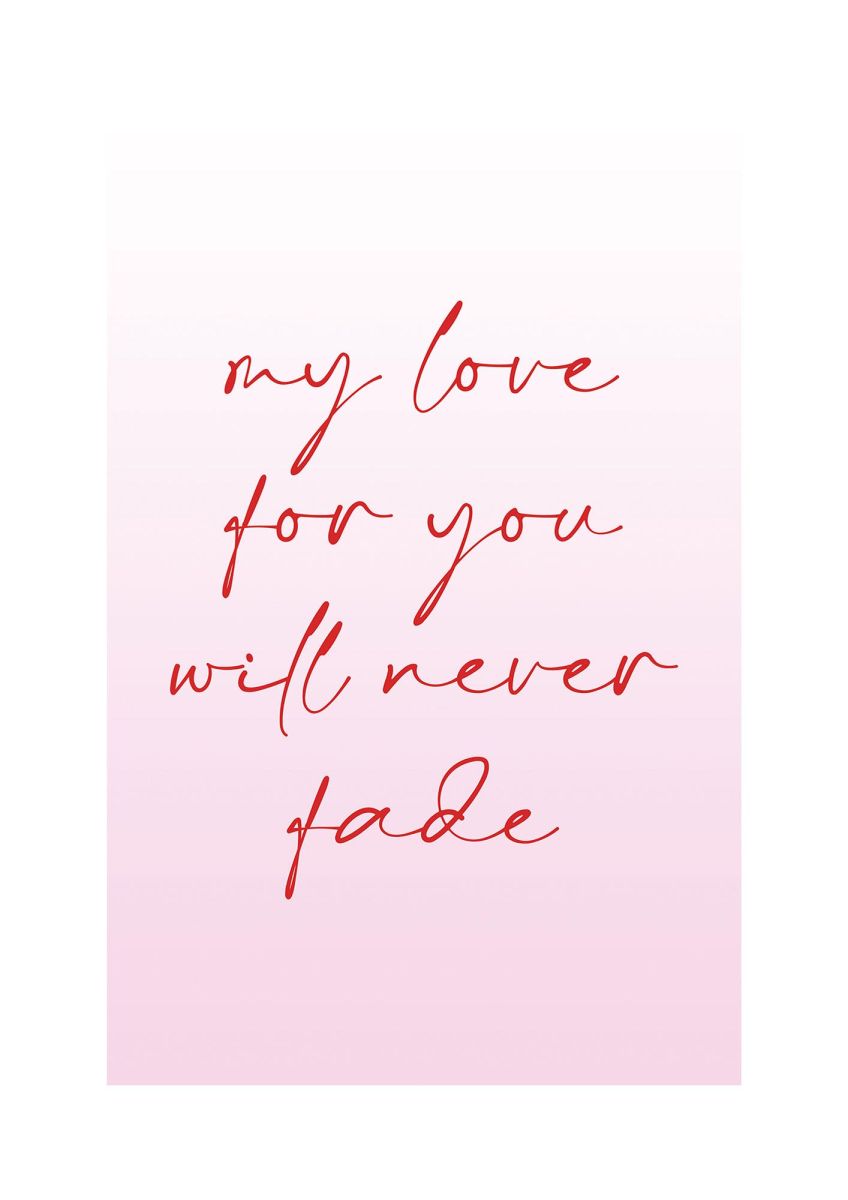 my love
for you
will never
fade